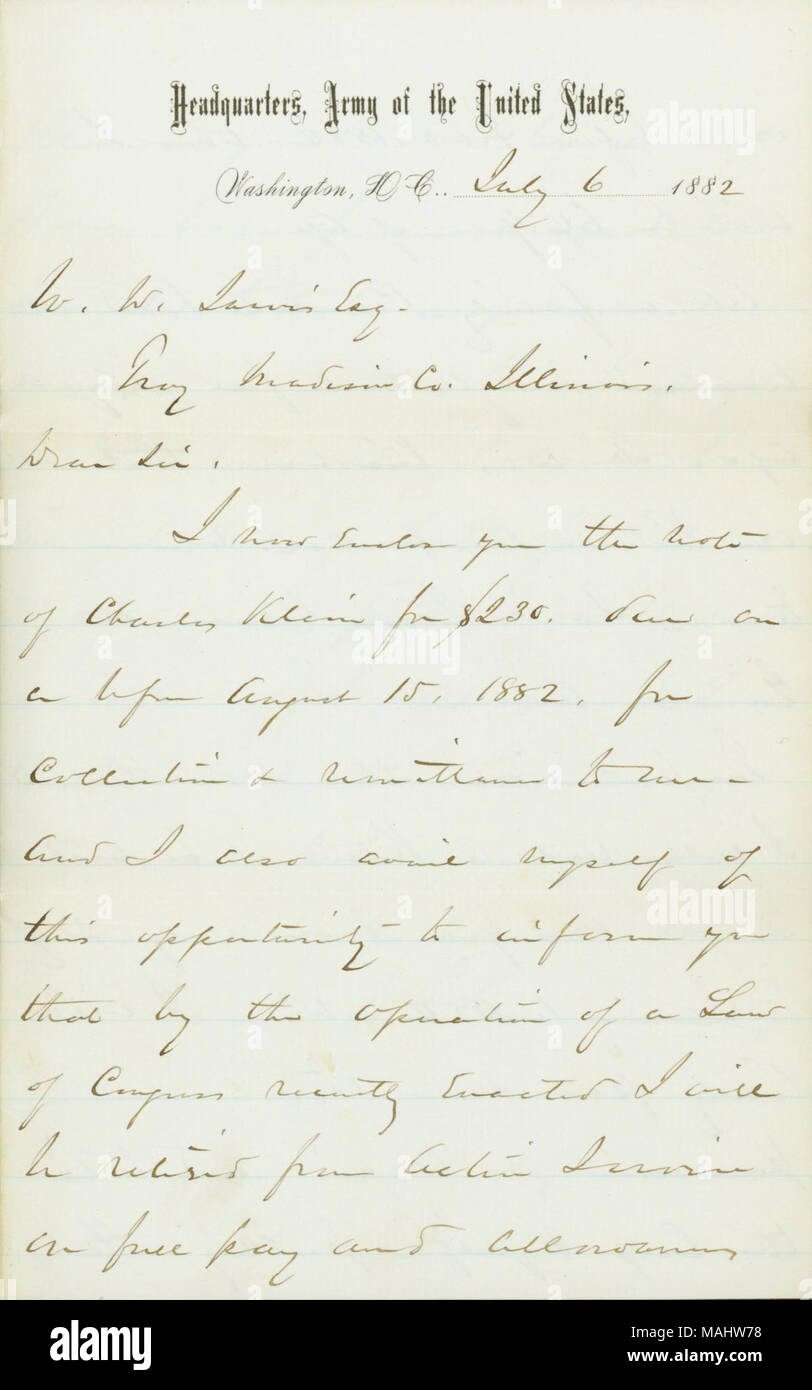 Headquarters, Army of the United States,
Washington, D.C., July 6 1882
W. W. Jarvis Esq.
Troy Madison Co. Illinois.
Dear Sir.
I now enclose you the note
of Charles Klein for $230. due on
or before August 15, 1882, for
Collection & remittance to me -
And I also avail myself of
this opportunity to inform you
that by the operation of a Law
of Congress recently Enacted I will
be retired from Active Service
on full pay and allowances
alamy
alamy
alamy
alamy
Image ID: MAHW78
www.alamy.com